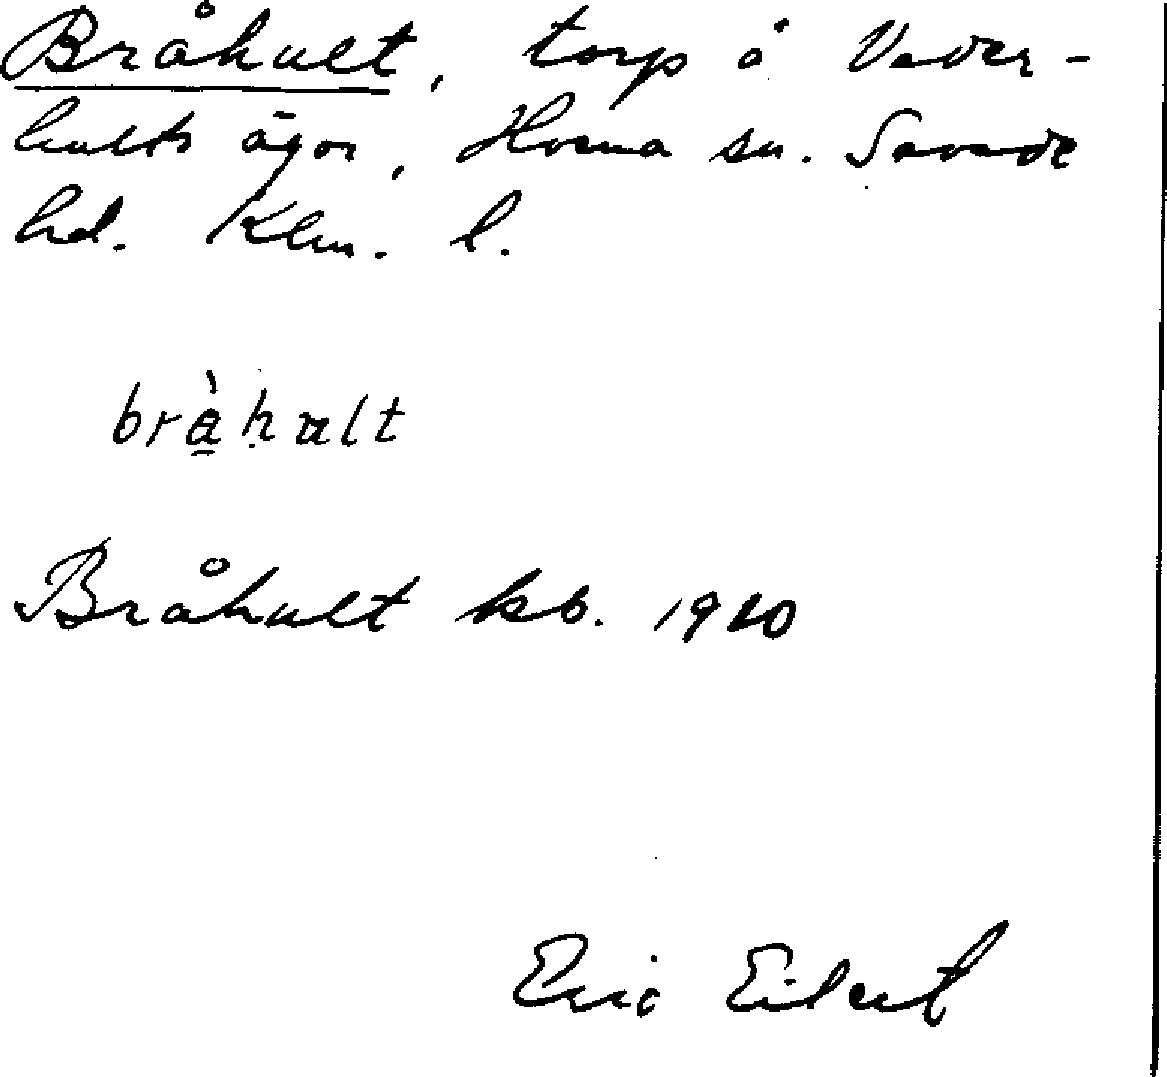 Bråhult, torp å Vader-
hults ägor, Horna sn. Sevede
hd. Klm. l.
bràhult
Bråhult kb. 1920
Eric